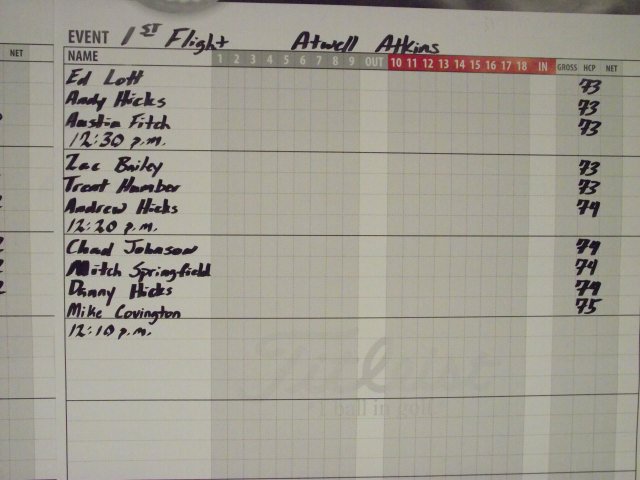 NET
EVENT 1ST Flight Atwell Atkins
NAME 1 2 3 4 5 6 7 8 9 OUT 10 11 12 13 14 15 16 17 18 IN GROSS HCP NET
Ed Lott 73
Andy Hicks 73
Austin Fitch 73
12:30 p.m.
Zac Bailey 73
Trent Humber 73
Andrew Hicks 74
12:20 p.m.
Chad Johnson 74
Mitch Springfield 74
Danny Hicks 74
Mike Covington 75
12:10 p.m.
Titleist
#1 ball in golf.